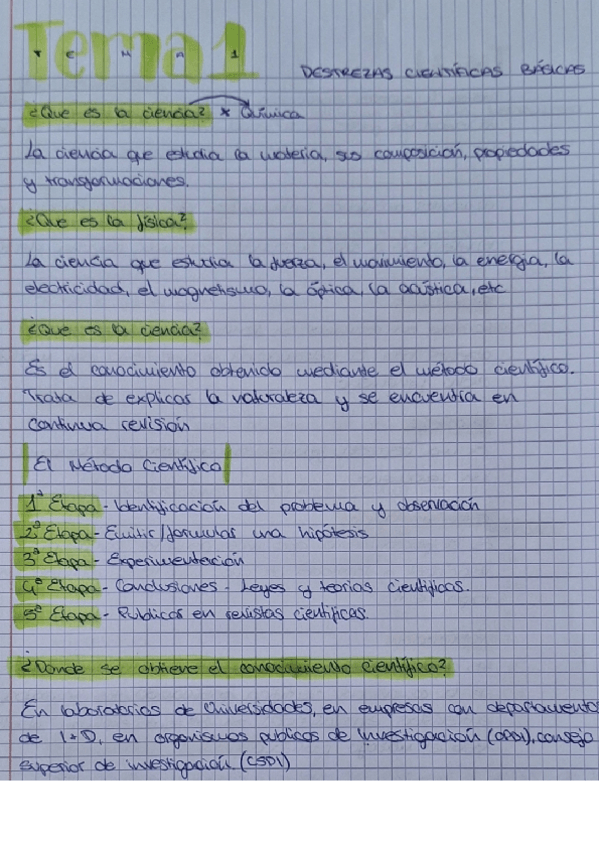 Tema 1
TEMA 1
DESTREZAS CIENTÍFICAS BÁSICAS
¿Que es la ciencia? * Química
La ciencia que estudia la materia, sus composición, propiedades
y transformaciones.
¿Que es la física?
La ciencia que estudia la fuerza, el movimiento, la energia, la
electricidad, el magnetismo, la óptica, la acústica, etc
¿Que es la ciencia?
Es el conocimiento obtenido mediante el método científico.
Trata de explicar la naturaleza y se encuentra en
continua revisión
El Método Científico
1ª Etapa - Identificación del problema y observación
2ª Etapa - Emitir/formular una hipótesis
3ª Etapa - Experimentación
4ª Etapa - Conclusiones - Leyes y teorias científicas.
5ª Etapa - Publicar en revistas científicas.
¿Donde se obtieve el conocimiento científico?
En laboratorios de Universidades, en empresas con departamento
de I+D, en organismos publicos de investigación (OPDI), consejo
superior de investigación (CSDI)